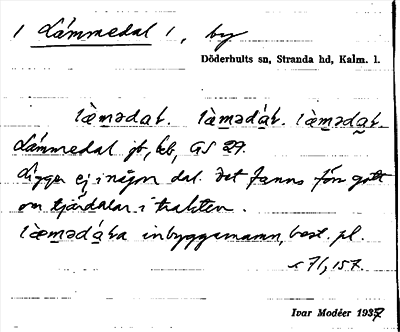 1 Lämmedal 1, by
Döderhults sn, Stranda hd, Kalm. l.
læ̀mədaḷ. læ̀mədáḷ. læ̀mədaḷ.
Lämmedal jb, kb, GS 29.
Ligger ej i någon dal. Det fanns förr gott
om tjärdalar i trakten.
inbyggarnamn, best. pl.
71, 157.
Ivar Modéer 1937